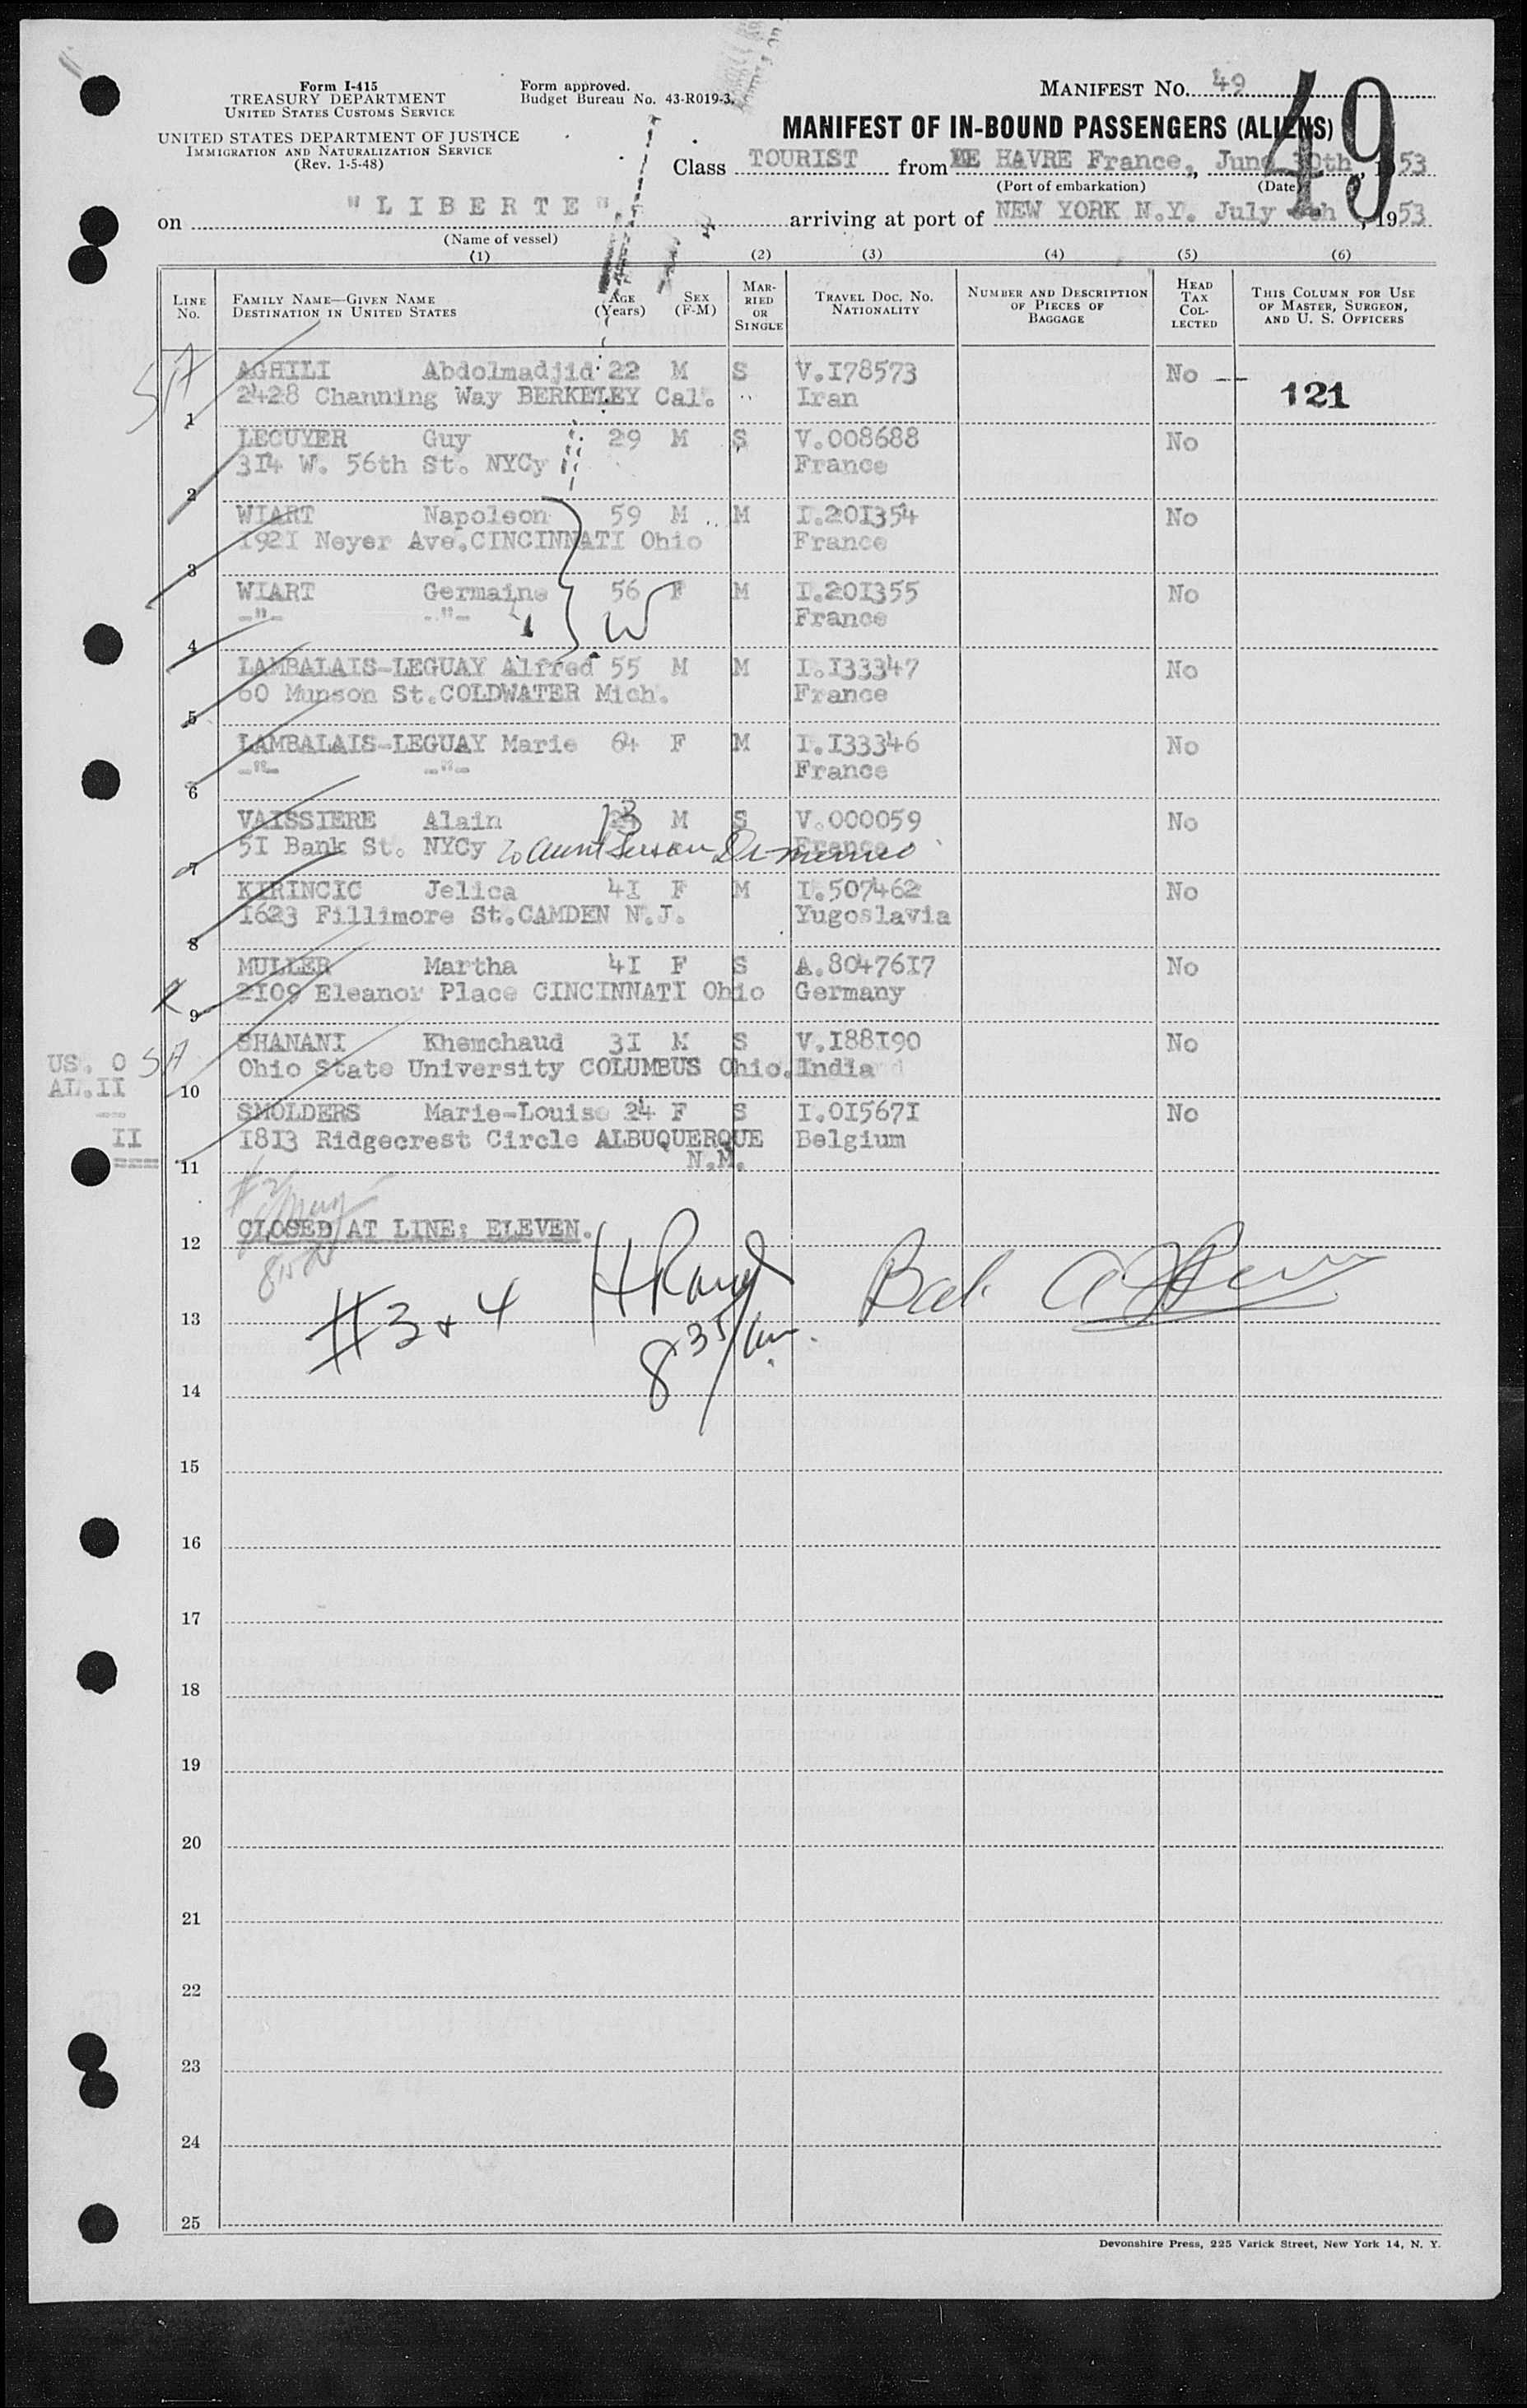 Form I-415
TREASURY DEPARTMENT
UNITED STATES CUSTOMS SERVICE
UNITED STATES DEPARTMENT OF JUSTICE
IMMIGRATION AND NATURALIZATION SERVICE
(Rev. 1-5-48)
Form approved.
Budget Bureau No. 43-R019-3.
MANIFEST NO. 49
49
MANIFEST OF IN-BOUND PASSENGERS (ALIENS)
Class TOURIST from LE HAVRE France, June 30th, 1953
(Port of embarkation) (Date)
on "LIBERTE" arriving at port of NEW YORK N.Y. July 6th, 1953
(Name of vessel)
(1) (2) (3) (4) (5) (6)
LINE NO.
FAMILY NAME—GIVEN NAME DESTINATION IN UNITED STATES
AGE (Years)
SEX (F-M)
MARRIED OR SINGLE
TRAVEL DOC. NO. NATIONALITY
NUMBER AND DESCRIPTION OF PIECES OF BAGGAGE
HEAD TAX COLLECTED
THIS COLUMN FOR USE OF MASTER, SURGEON, AND U. S. OFFICERS
AGHILI Abdolmadjid 22 M S V.I78573 No -- 121
1 2428 Channing Way BERKELEY Cal. Iran
LECUYER Guy 29 M S V.008688 No
2 3I4 W. 56th St. NYCy France
WIART Napoleon 59 M M I.20I354 No
3 I92I Neyer Ave.CINCINNATI Ohio France
WIART Germaine 56 F M I.20I355 No
4 -"- -"- W France
LAMBALAIS-LEGUAY Alfred 55 M M I.I33347 No
5 60 Munson St.COLDWATER Mich. France
LAMBALAIS-LEGUAY Marie 64 F M I.I33346 No
6 -"- -"- France
VAISSIERE Alain 13 M S V.000059 No
7 5I Bank St. NYCy to aunt France
KIRINCIC Jelica 4I F M I.507462 No
8 I623 Fillimore St.CAMDEN N.J. Yugoslavia
MULLER Martha 4I F S A.80476I7 No
9 2I09 Eleanor Place CINCINNATI Ohio Germany
SHANANI Khemchaud 3I M S V.I88I90 No
10 Ohio State University COLUMBUS Ohio. India
US. 0
AL.II
--
II
===
SMOLDERS Marie-Louise 24 F S I.0I567I No
11 I8I3 Ridgecrest Circle ALBUQUERQUE Belgium
N.M.
12 CLOSED AT LINE: ELEVEN.
13 #3 & 4 H Rand
8 35/am.
14
15
16
17
18
19
20
21
22
23
24
25
Devonshire Press, 225 Varick Street, New York 14, N. Y.